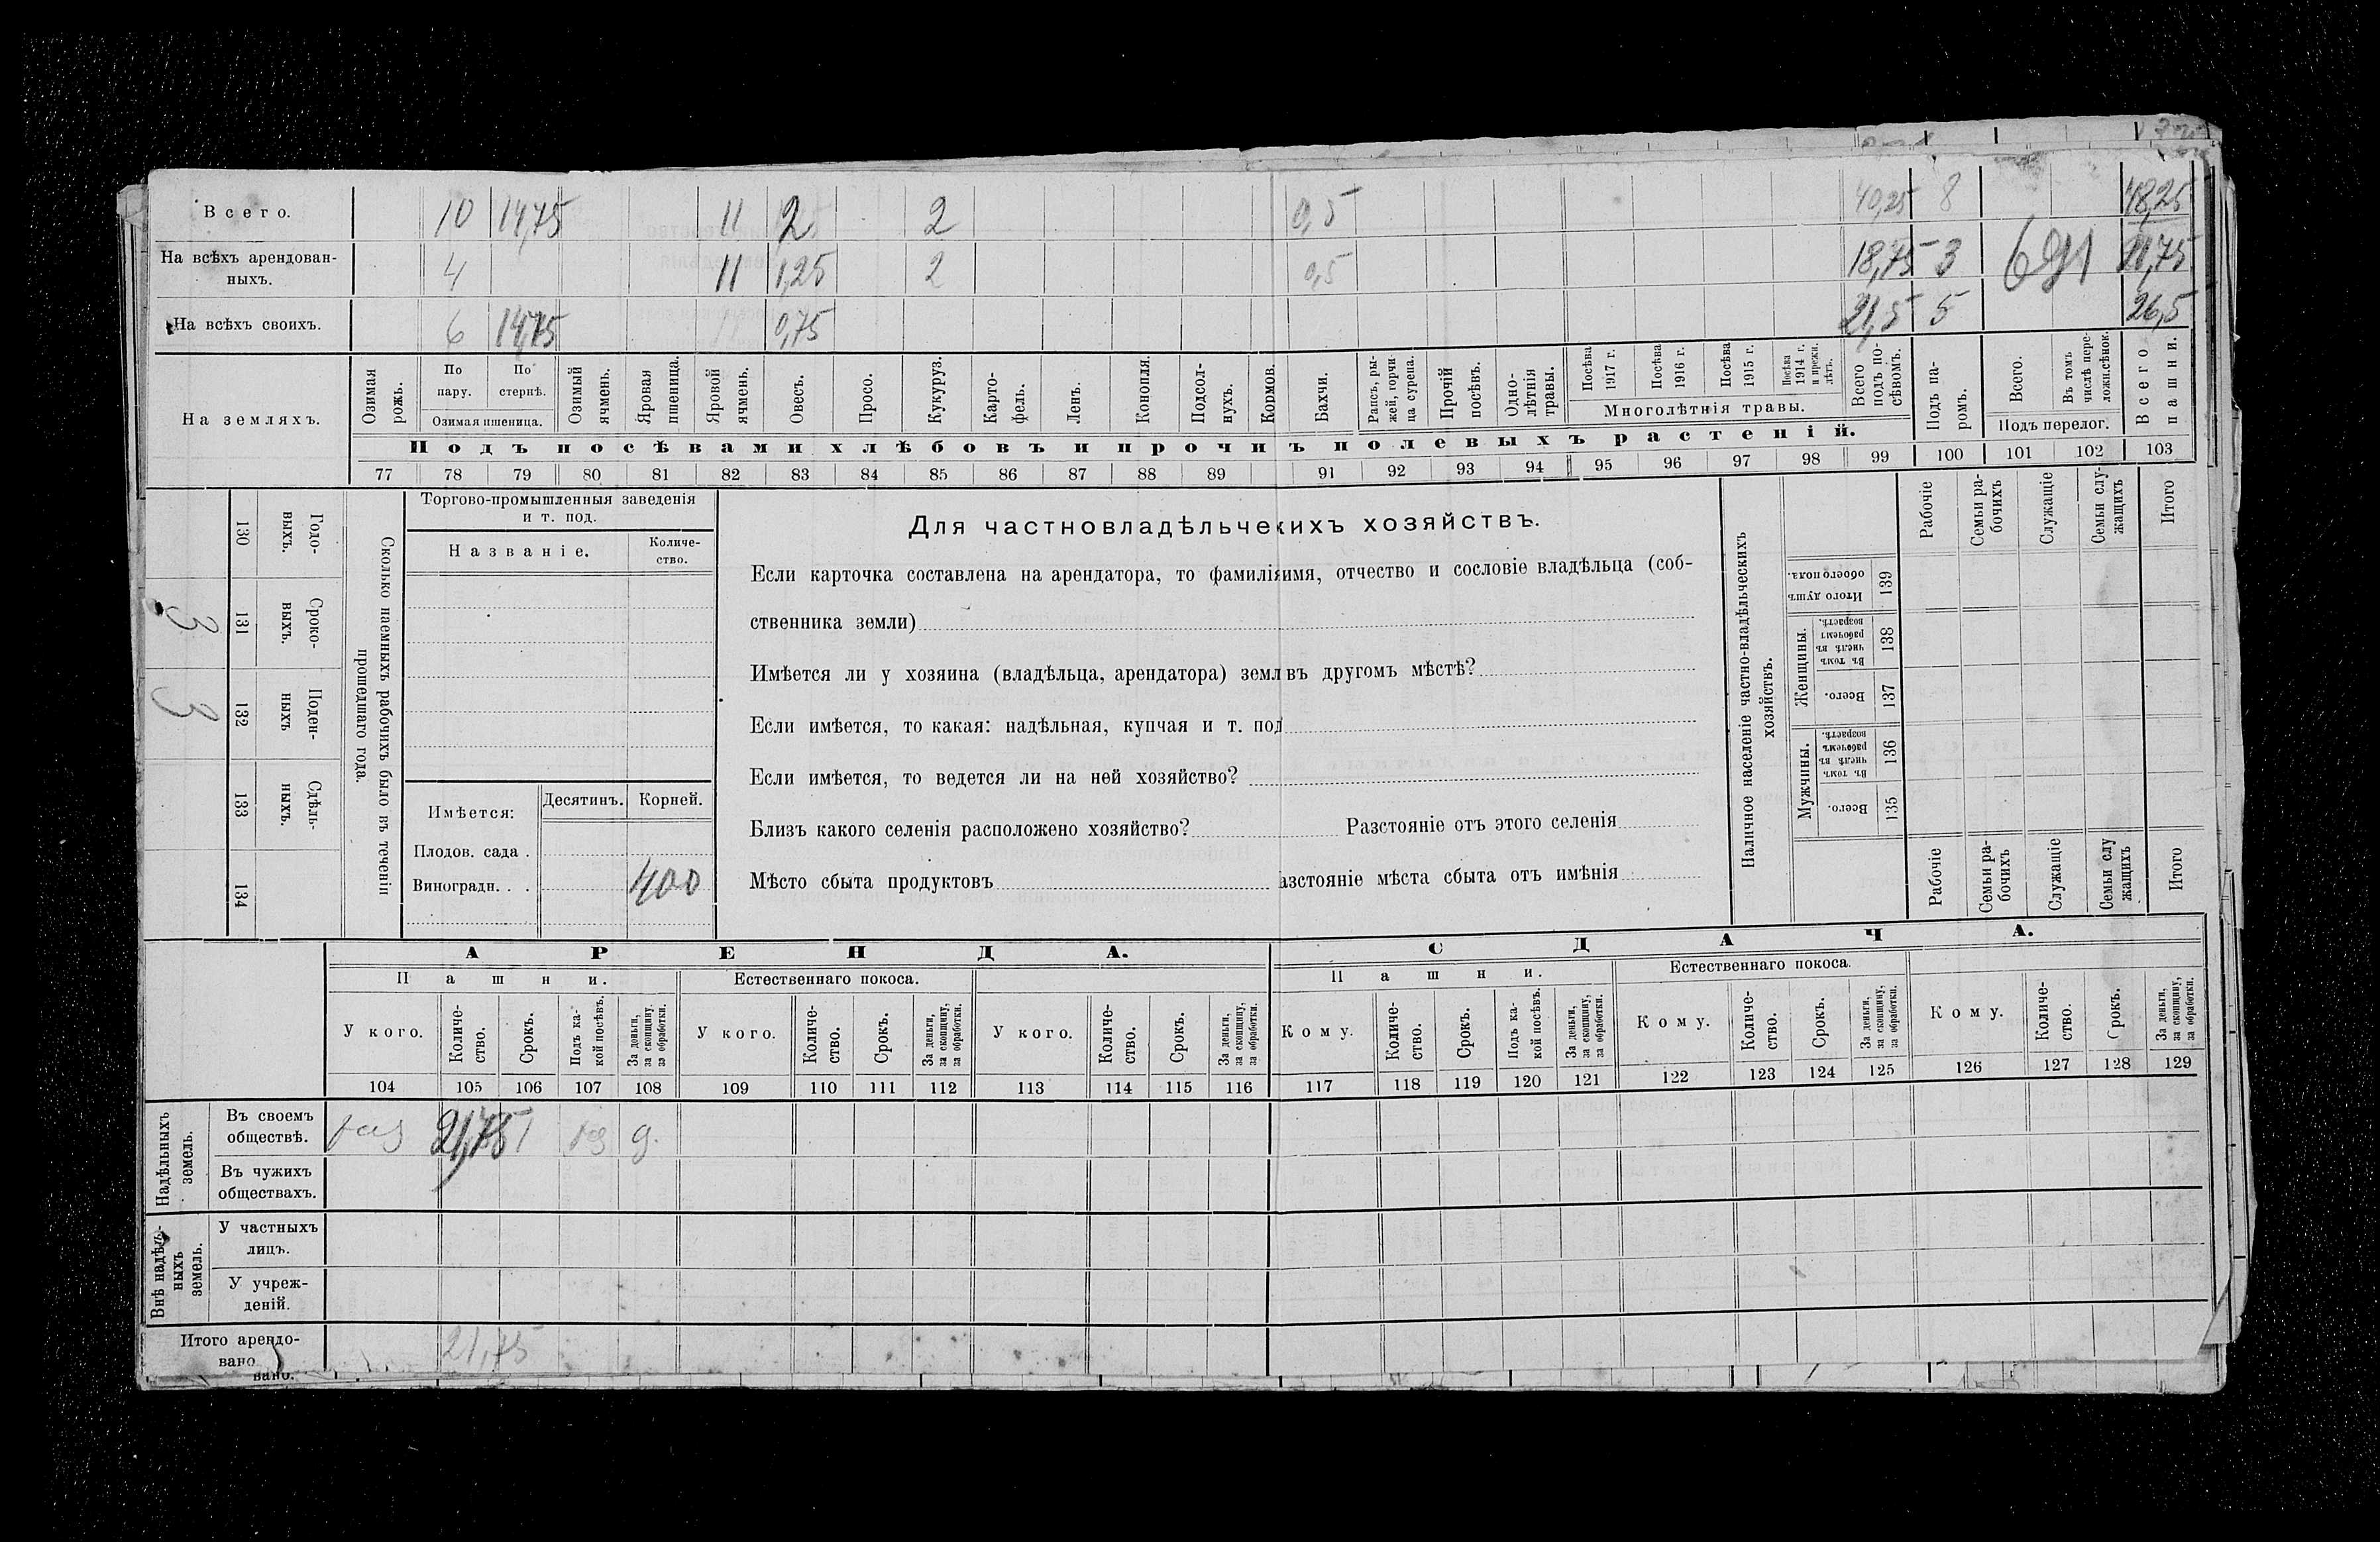 Всего. 10 14,75 11 2 2 0,5 40,25 8 48,25
На всѣхъ арендован-
ныхъ. 4 11 1,25 2 0,5 18,75 3 21,75
На всѣхъ своихъ. 6 14,75 0,75 21,5 5 26,5
На земляхъ.
Озимая рожь.
По пару.
По стернѣ.
Озимая пшеница.
Озимый ячмень.
Яровая пшеница.
Яровой ячмень.
Овесъ.
Просо.
Кукуруз.
Карто-
фель.
Ленъ.
Конопля.
Подсол-
нухъ.
Кормов.
Бахчи.
Рапсъ, ры-
жей, горчи-
ца сурепа.
Прочій посѣвъ.
Одно-
лѣтнія травы.
Посѣва 1917 г.
Посѣва 1916 г.
Посѣва 1915 г.
Посѣва 1914 г. и прежн. лѣтъ.
Многолѣтнія травы.
Всего подъ по-
сѣвомъ.
Подъ па-
ромъ.
Всего.
Въ томъ числѣ пере-
ложн.сѣнок.
Подъ перелог.
Всего пашни.
Подъ посѣвами хлѣбовъ и прочихъ полевыхъ растеній.
77 78 79 80 81 82 83 84 85 86 87 88 89 91 92 93 94 95 96 97 98 99 100 101 102 103
130 Годо-
выхъ.
131 Сроко-
выхъ. 3
132 Поден-
ныхъ 3
133 Сдѣль-
ныхъ.
134
Сколько наемныхъ рабочихъ было въ теченіи
прошедшаго года.
Торгово-промышленныя заведенія
и т. под.
Названіе.
Количе-
ство.
Имѣется: Десятинъ. Корней.
Плодов. сада .
Виноградн. . . 400
Для частновладѣльческихъ хозяйствъ.
Если карточка составлена на арендатора, то фамилія имя, отчество и сословіе владѣльца (соб-
ственника земли)
Имѣется ли у хозяина (владѣльца, арендатора) земл въ другомъ мѣстѣ?
Если имѣется, то какая: надѣльная, купчая и т. под
Если имѣется, то ведется ли на ней хозяйство?
Близъ какого селенія расположено хозяйство? Разстояніе отъ этого селенія
Мѣсто сбыта продуктовъ азстояніе мѣста сбыта отъ имѣнія
Наличное населеніе частно-владѣльческихъ
хозяйствъ.
Рабочіе
Семьи ра-
бочихъ
Служащіе
Семьи слу-
жащихъ
Итого
Итого душъ обоего пола. 139
Женщины.
Въ томъ числѣ въ рабочемъ возрастѣ. 138
Всего. 137
Мужчины.
Въ томъ числѣ въ рабочемъ возрастѣ. 136
Всего. 135
Рабочіе
Семьи ра-
бочихъ
Служащіе
Семьи слу
жащихъ
Итого
АРЕНДА. СДАЧА.
Пашни. Естественнаго покоса. Пашни. Естественнаго покоса.
У кого.
Количе-
ство.
Срокъ.
Подъ ка-
кой посѣвъ.
За деньги, за скопщину, за обработки.
У кого.
Количе-
ство.
Срокъ.
За деньги, за скопщину, за обработки.
У кого.
Количе-
ство.
Срокъ.
За деньги, за скопщину, за обработки.
Кому.
Количе-
ство.
Срокъ.
Подъ ка-
кой посѣвъ.
За деньги, за скопщину, за обработки.
Кому.
Количе-
ство.
Срокъ.
За деньги, за скопщину, за обработки.
Кому.
Количе-
ство.
Срокъ.
За деньги, за скопщину, за обработки.
104 105 106 107 108 109 110 111 112 113 114 115 116 117 118 119 120 121 122 123 124 125 126 127 128 129
Надѣльныхъ
земель.
Въ своемъ
обществѣ. 21,75 1 д.
Въ чужихъ
обществахъ.
Внѣ надѣль-
ныхъ
земель.
У частныхъ
лицъ.
У учреж-
деній.
Итого арендо-
вано 21,75
вано.